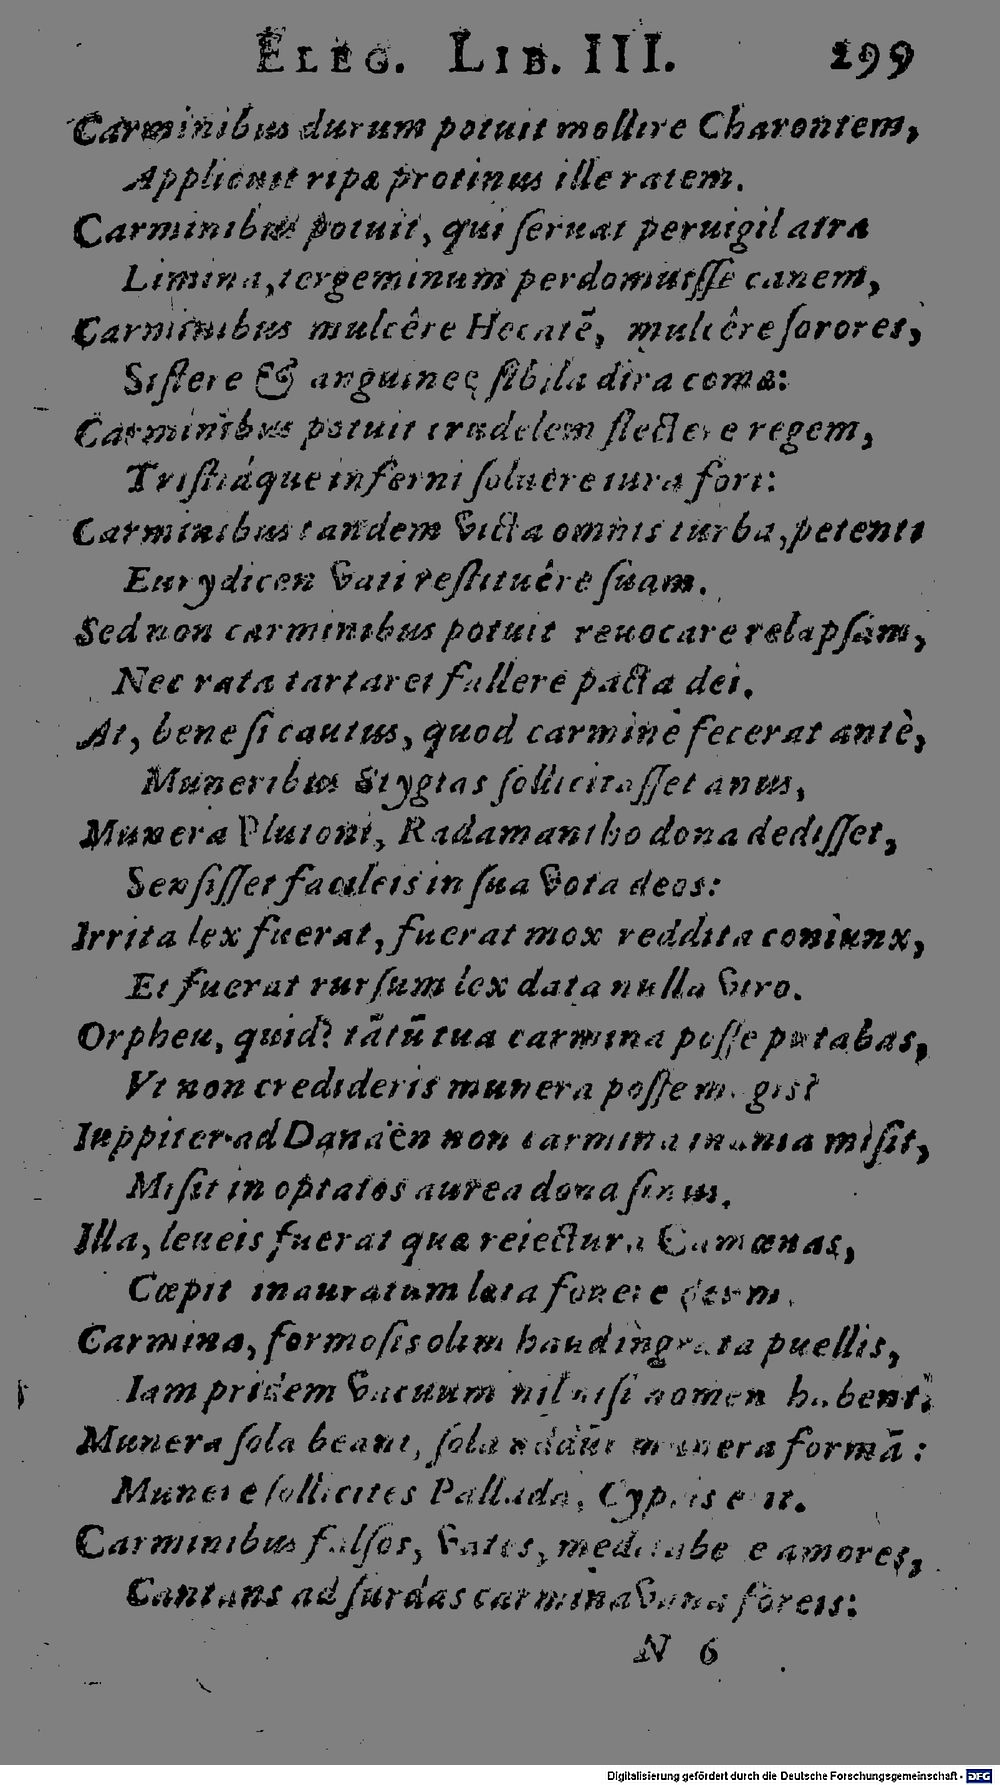 ELEG. LIB. III. 299
Carminibus durum potuit mollire Charontem,
Applicuit ripæ protinus ille ratem.
Carminibus potuit, qui ſeruat peruigil atra
Limina, tergeminum perdomuiſſe canem,
Carminibus mulcêre Hecatē, mulcêre ſorores,
Siſtere & anguineę ſibila dira comæ:
Carminibus potuit crudelem flectere regem,
Triſtiáque inferni ſoluere iura fori:
Carminibus tandem victa omnis turba, petenti
Eurydicen vati reſtituêre ſuam.
Sed non carminibus potuit reuocare relapſam,
Nec rata tartarei fallere pacta dei.
At, bene ſi cautus, quod carmine fecerat antè,
Muneribus Stygias ſollicitaſſet anus,
Munera Plutoni, Radamantho dona dediſſet,
Senſiſſet faciles in ſua vota deos:
Irrita lex fuerat, fuerat mox reddita coniunx,
Et fuerat rurſum lex data nulla viro.
Orpheu, quid? tātū tua carmina poſſe putabas,
Vt non credideris munera poſſe magis?
Iuppiter ad Danaën non carmina inania miſit,
Miſit in optatos aurea dona ſinus.
Illa, leueis fuerat quæ reiectura Camœnas,
Cœpit inauratum læta fouere deum.
Carmina, formoſis olim haud ingrata puellis,
Iam pridem vacuum nil niſi nomen habent:
Munera ſola beant, ſola addūt munera formā:
Munere ſollicites Pallada, Cypris erit.
Carminibus falſos, vates, meditabere amores,
Cantans ad ſurdas carmina vana foreis:
N 6
Digitalisierung gefördert durch die Deutsche Forschungsgemeinschaft - DFG